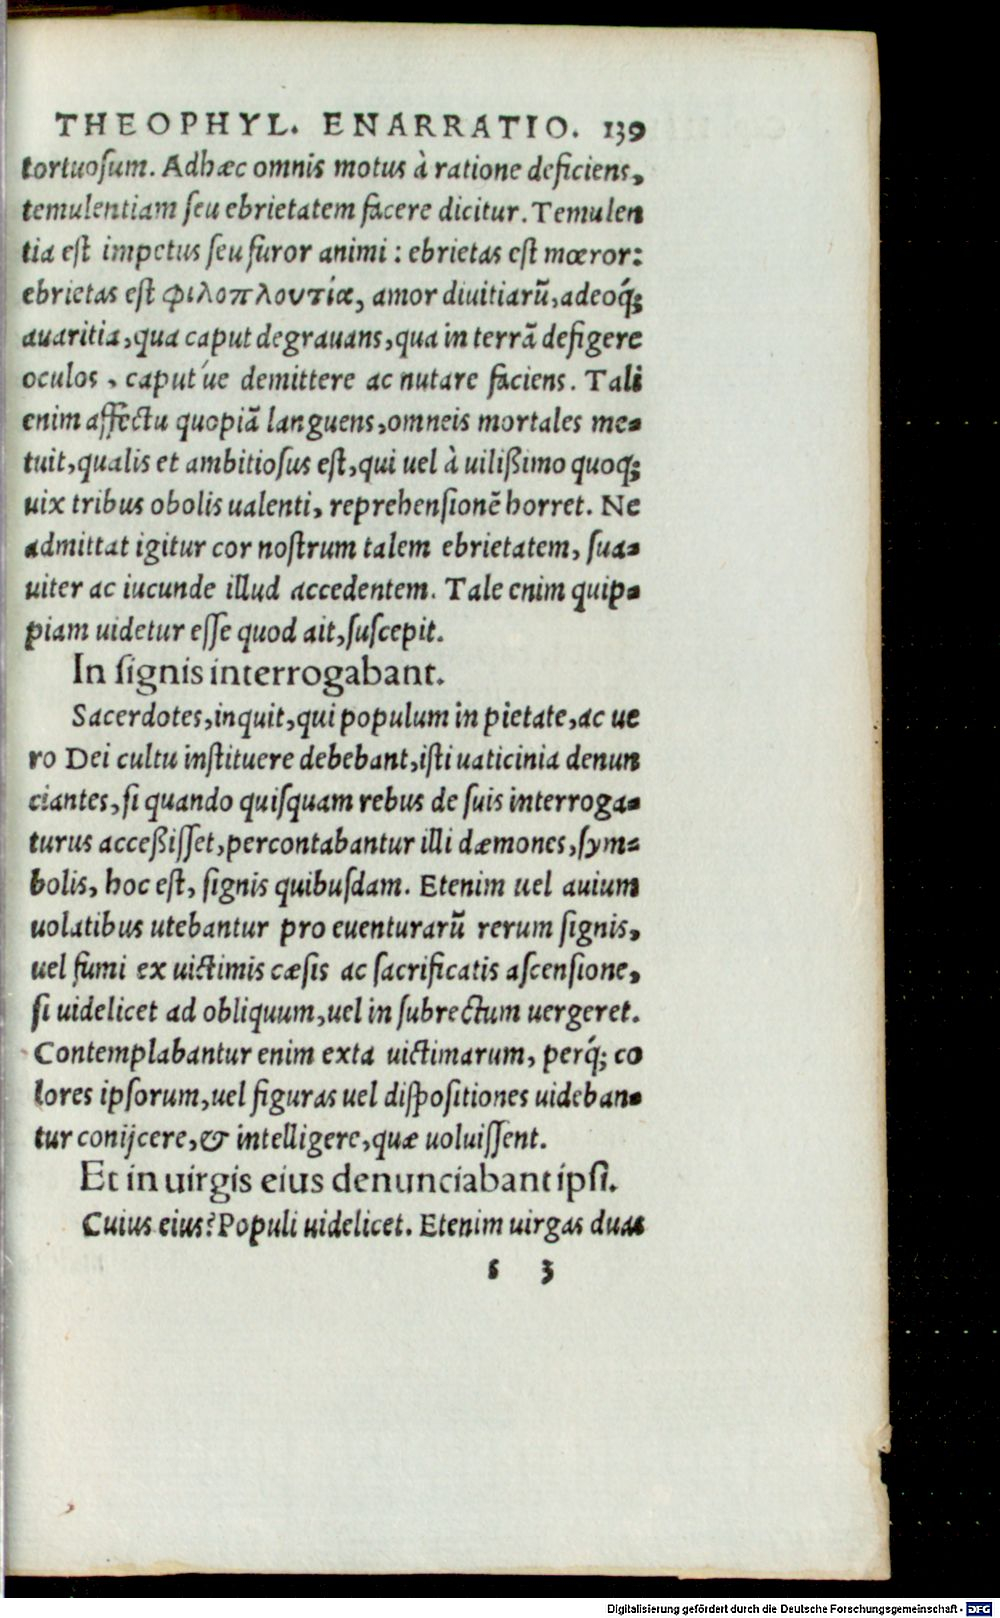 THEOPHYL. ENARRATIO. 139
tortuoſum. Adhæc omnis motus à ratione deficiens,
temulentiam ſeu ebrietatem facere dicitur. Temulen
tia eſt impetus ſeu furor animi: ebrietas eſt mœror:
ebrietas eſt φιλοπλουτία, amor diuitiarũ, adeoq́;
auaritia, qua caput degrauans, qua in terrã defigere
oculos, caput úe demittere ac nutare faciens. Tali
enim affectu quopiã languens, omneis mortales me-
tuit, qualis et ambitioſus eſt, qui uel à uilißimo quoq;
uix tribus obolis ualenti, reprehenſionẽ horret. Ne
admittat igitur cor noſtrum talem ebrietatem, ſua-
uiter ac iucunde illud accedentem. Tale enim quip-
piam uidetur eſſe quod ait, ſuſcepit.
In ſignis interrogabant.
Sacerdotes, inquit, qui populum in pietate, ac ue
ro Dei cultu inſtituere debebant, iſti uaticinia denun
ciantes, ſi quando quiſquam rebus de ſuis interroga-
turus acceßiſſet, percontabantur illi dæmones, ſym-
bolis, hoc eſt, ſignis quibuſdam. Etenim uel auium
uolatibus utebantur pro euenturarũ rerum ſignis,
uel fumi ex uictimis cæſis ac ſacrificatis aſcenſione,
ſi uidelicet ad obliquum, uel in ſubrectum uergeret.
Contemplabantur enim exta uictimarum, perq́; co
lores ipſorum, uel figuras uel diſpoſitiones uideban-
tur conijcere, & intelligere, quæ uoluiſſent.
Et in uirgis eius denunciabant ipſi.
Cuius eius? Populi uidelicet. Etenim uirgas duas
s 3
Digitalisierung gefördert durch die Deutsche Forschungsgemeinschaft - DFG